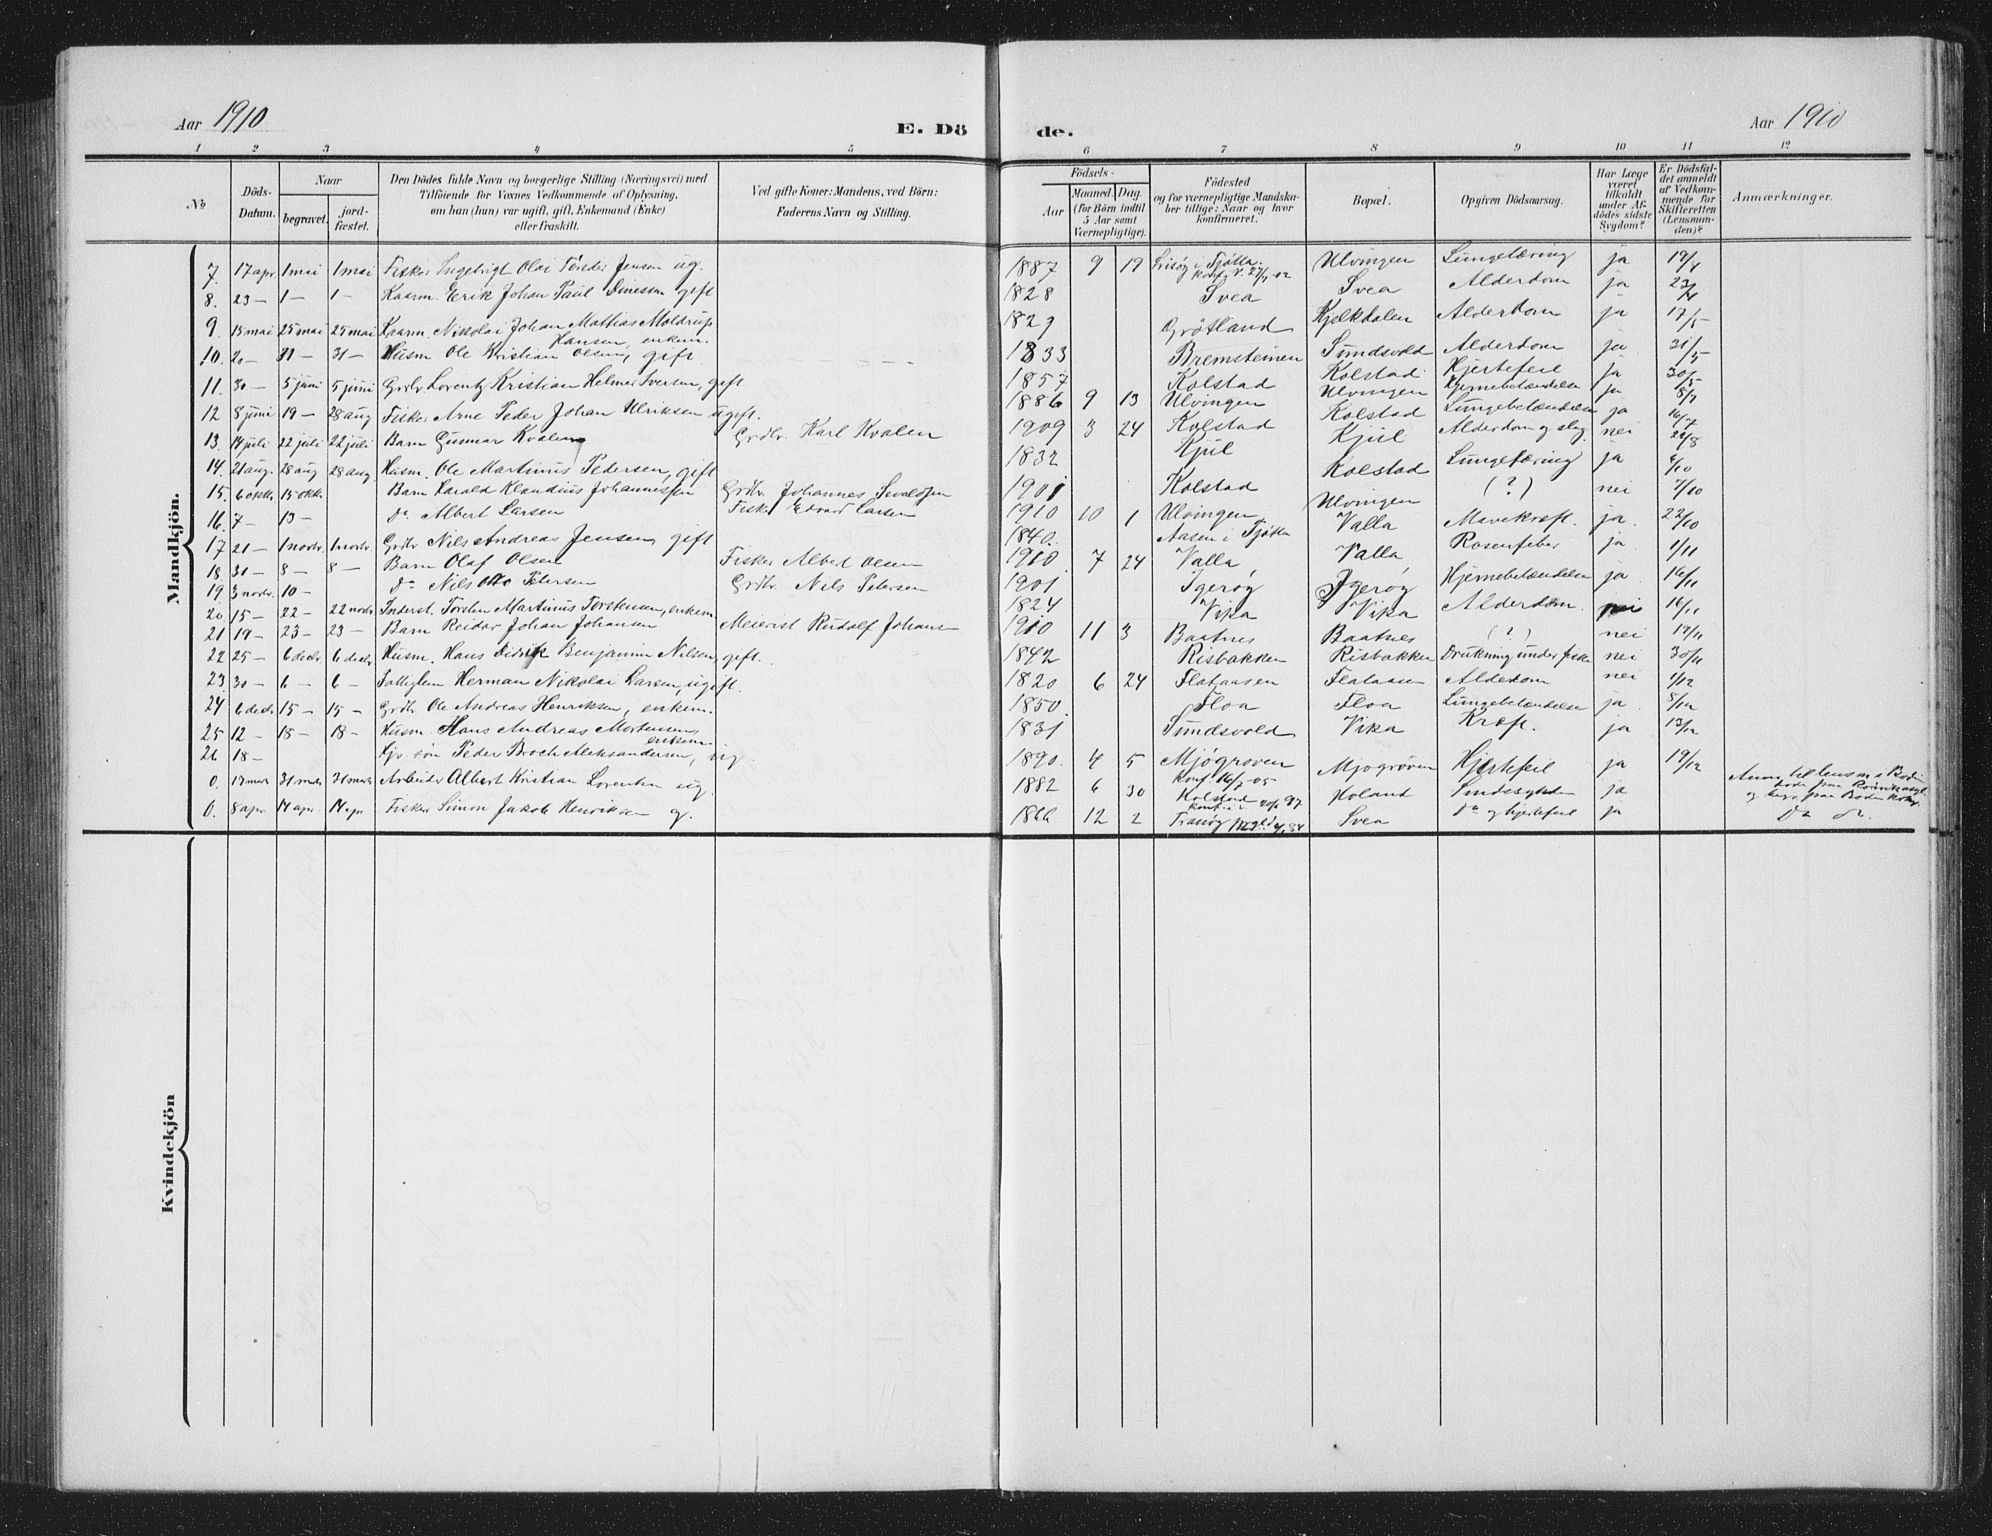 Aar 1910
E. Dö
de.
Aar 1910
1 2 3 4 5 6 7 8 9 10 11 12
№
Döds-Datum.
Naar
begravet.
jord-fæstet.
Den Dödes fulde Navn og borgerlige Stilling (Næringsvei) med
Tilföiende for Voxnes Vedkommende af Oplysning,
om han (hun) var ugift, gift, Enkemand (Enke)
eller fraskilt.
Ved gifte Koner: Mandens, ved Börn:
Faderens Navn og Stilling.
Födsels-
Aar
Maaned. Dag.
(for Börn indtil
5 Aar samt
Værnepligtige).
Födested
og for værnepligtige Mandska-
ber tillige: Naar og hvor
konfirmeret.
Bopæl.
Opgiven Dödsaarsag.
Har Læge
været
tilkaldt
under Af-
dödes sidste
Sygdom?
Er Dödsfal-
det anmeldt
af Vedkom-
mende for
Skifteretten
(Lensman-
den)?
Anmærkninger.
Mandkjön.
7. 17 apr. 1 mai 1 mai Fisker Ingebrigt Olai Jensen ug. 1887 9 19 Tjøtta Ulvingen Lungetæring ja 19/4
8. 23 — 1 — 1 — Kaarm. Erik Johan Paul Dinessen gift 1828 Svea Svea Alderdom ja 23/4
9. 13 mai 25 mai 25 mai Kaarm. Nikolai Johan Mattias Moldrup
Hansen, enkem. 1829 Grötland Kjelkdalen Alderdom ja 17/5
10. 20 — 31 — 31 — Husm. Ole Kristian Olsen, gift 1833 Bremsteinen Sundsvold Alderdom ja 31/5
11. 30 — 5 juni 5 juni Grdbr. Lorentz Kristian Helmer Iversen, gift 1857 Kolstad Kolstad Hjertefeil ja 30/5
12 8 juni 19 — 28 aug Fisker Arne Peder Johan Ulriksen ugift. 1886 9 13 Ulvingen Ulvingen Hjernebetændelse ja 8/7
13. 14 juli 22 juli 22 juli Barn Gunnar Kvalen Grdbr. Karl Kvalen 1909 3 24 Kolstad Kolstad Lungebetændelse ja 16/7
14. 21 aug. 28 aug 28 aug Husm. Ole Martinus Pedersen, gift 1832 Kjul Kjul Alderdom og slag nei 22/8
15. 6 oktr. 15 oktr. Barn Harald Klaudius Johannessen Grdbr. Johannes Sevaldsen 1901 Kolstad Kolstad Lungetæring ja 6/10
16. 7 — 13 — do Albert Larsen Fisker Edvard Larsen 1910 10 1 Ulvingen Ulvingen (?) nei 7/10
17 21 — 1 novbr 1 novbr Grdbr. Nils Andreas Jensen, gift 1840. Aasen i Tjøtta Valla Mavekræft. ja. 22/10
18. 31 — 8 — 8 — Barn Olaf Olsen Fisker Albert Olsen 1910. 7 24 Valla, Valla Rosenfeber ja. 1/11
19. 3 novbr. 10 — do Nils Otto Petersen Grdbr. Nils Petersen 1901 Igerøg Igerøg Hjernebetændelse ja. 16/11
20. 15 — 22 — 22 novbr Inderst. Torsten Martinus Torstensen, enkem. 1824 Vika Vika Alderdom. nei 16/11
21 19 — 23 — 23 — Barn Reidar Johan Johansen Meierist Rudolf Johansen 1910 11 3 Baatnes Baatnes (?) nei 19/11
22 25 — 6 decbr. 6 decbr. Husm. Hans Didrik Benjamin Nilsen, gift. 1842 Risbakken Risbakken Drukning under fiske nei 30/11
23. 30 — 6 — 6 — Fattiglem Herman Nikolai Larsen, ugift. 1820 6 24 Flataasen Flataasen Alderdom nei 1/12
24 6 decbr. 15 — 15 — Grdbr. Ole Andreas Henriksen, enkem. 1850. Floa Floa Lungebetændelse ja. 8/12
25 12 — 18 — 18 — Husm. Hans Andreas Mortensen,
enkem. 1831 Sundsvold Vika Kræft. ja 13/12
26 18 — Gjv. søn Peder Broch Aleksandersen, ug. 1890. 4 5 Mjögroven
konf. 16/7-05 Mjogröven Hjertefeil ja 19/12
0. 17 mars 31 mars 31 mars Arbeider Albert Kristian Lorentsen ug. 1882 6 30 Kolstad
Holand Sindssygdom ja
0. 8 apr. 14 apr. 14 apr. Fisker Simon Jakob Henriksen g. 1866 12 2 Tranøy Svea do og hjertefeil ja do do.
Kvindekjön